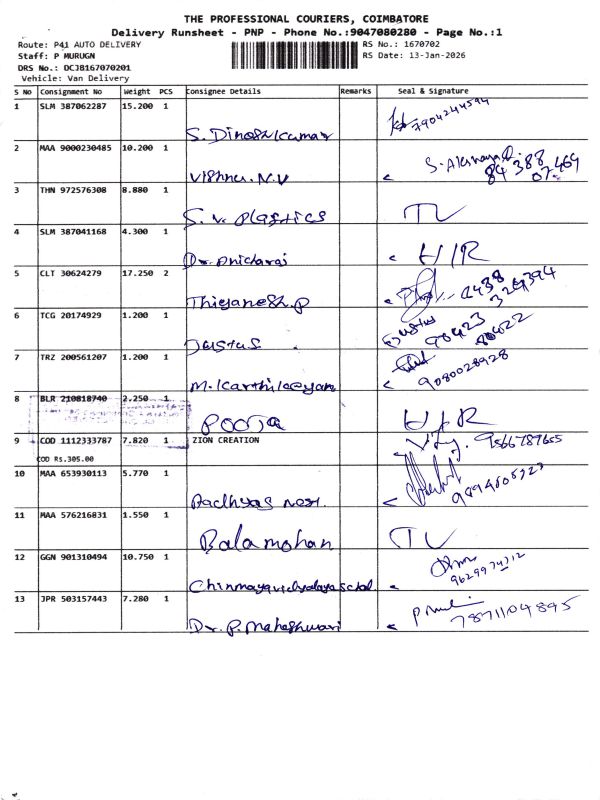 THE PROFESSIONAL COURIERS, COIMBATORE
Delivery Runsheet - PNP - Phone No.:9047080280 - Page No.:1
Route: P41 AUTO DELIVERY
Staff: P MURUGN
DRS No.: DCJB167070201
Vehicle: Van Delivery
RS No.: 1670702
RS Date: 13-Jan-2026
S No Consignment No Weight PCS Consignee Details Remarks Seal & Signature
1 SLM 387062287 15.200 1
S. Dineshkumar 7904244594
2 MAA 9000230485 10.200 1
Vishnu. N.V 84 388 07464
3 THN 972576308 8.880 1
S. V. Plastics TV
4 SLM 387041168 4.300 1
H/R
5 CLT 30624279 17.250 2
Thiganesh. P
6 TCG 20174929 1.200 1
Justus 90423 80422
7 TRZ 200561207 1.200 1
M. Karthikeyan 9080028928
8 BLR 210818740 2.250 1
POOJA H/R
9 COD 1112333787 7.820 1 ZION CREATION 9566787655
COD Rs.305.00
10 MAA 653930113 5.770 1
11 MAA 576216831 1.550 1
Balamohan TV
12 GGN 901310494 10.750 1
Chinmayavidyalaya 9629974312
13 JPR 503157443 7.280 1
Dr. P. Maheshwari 7871104895